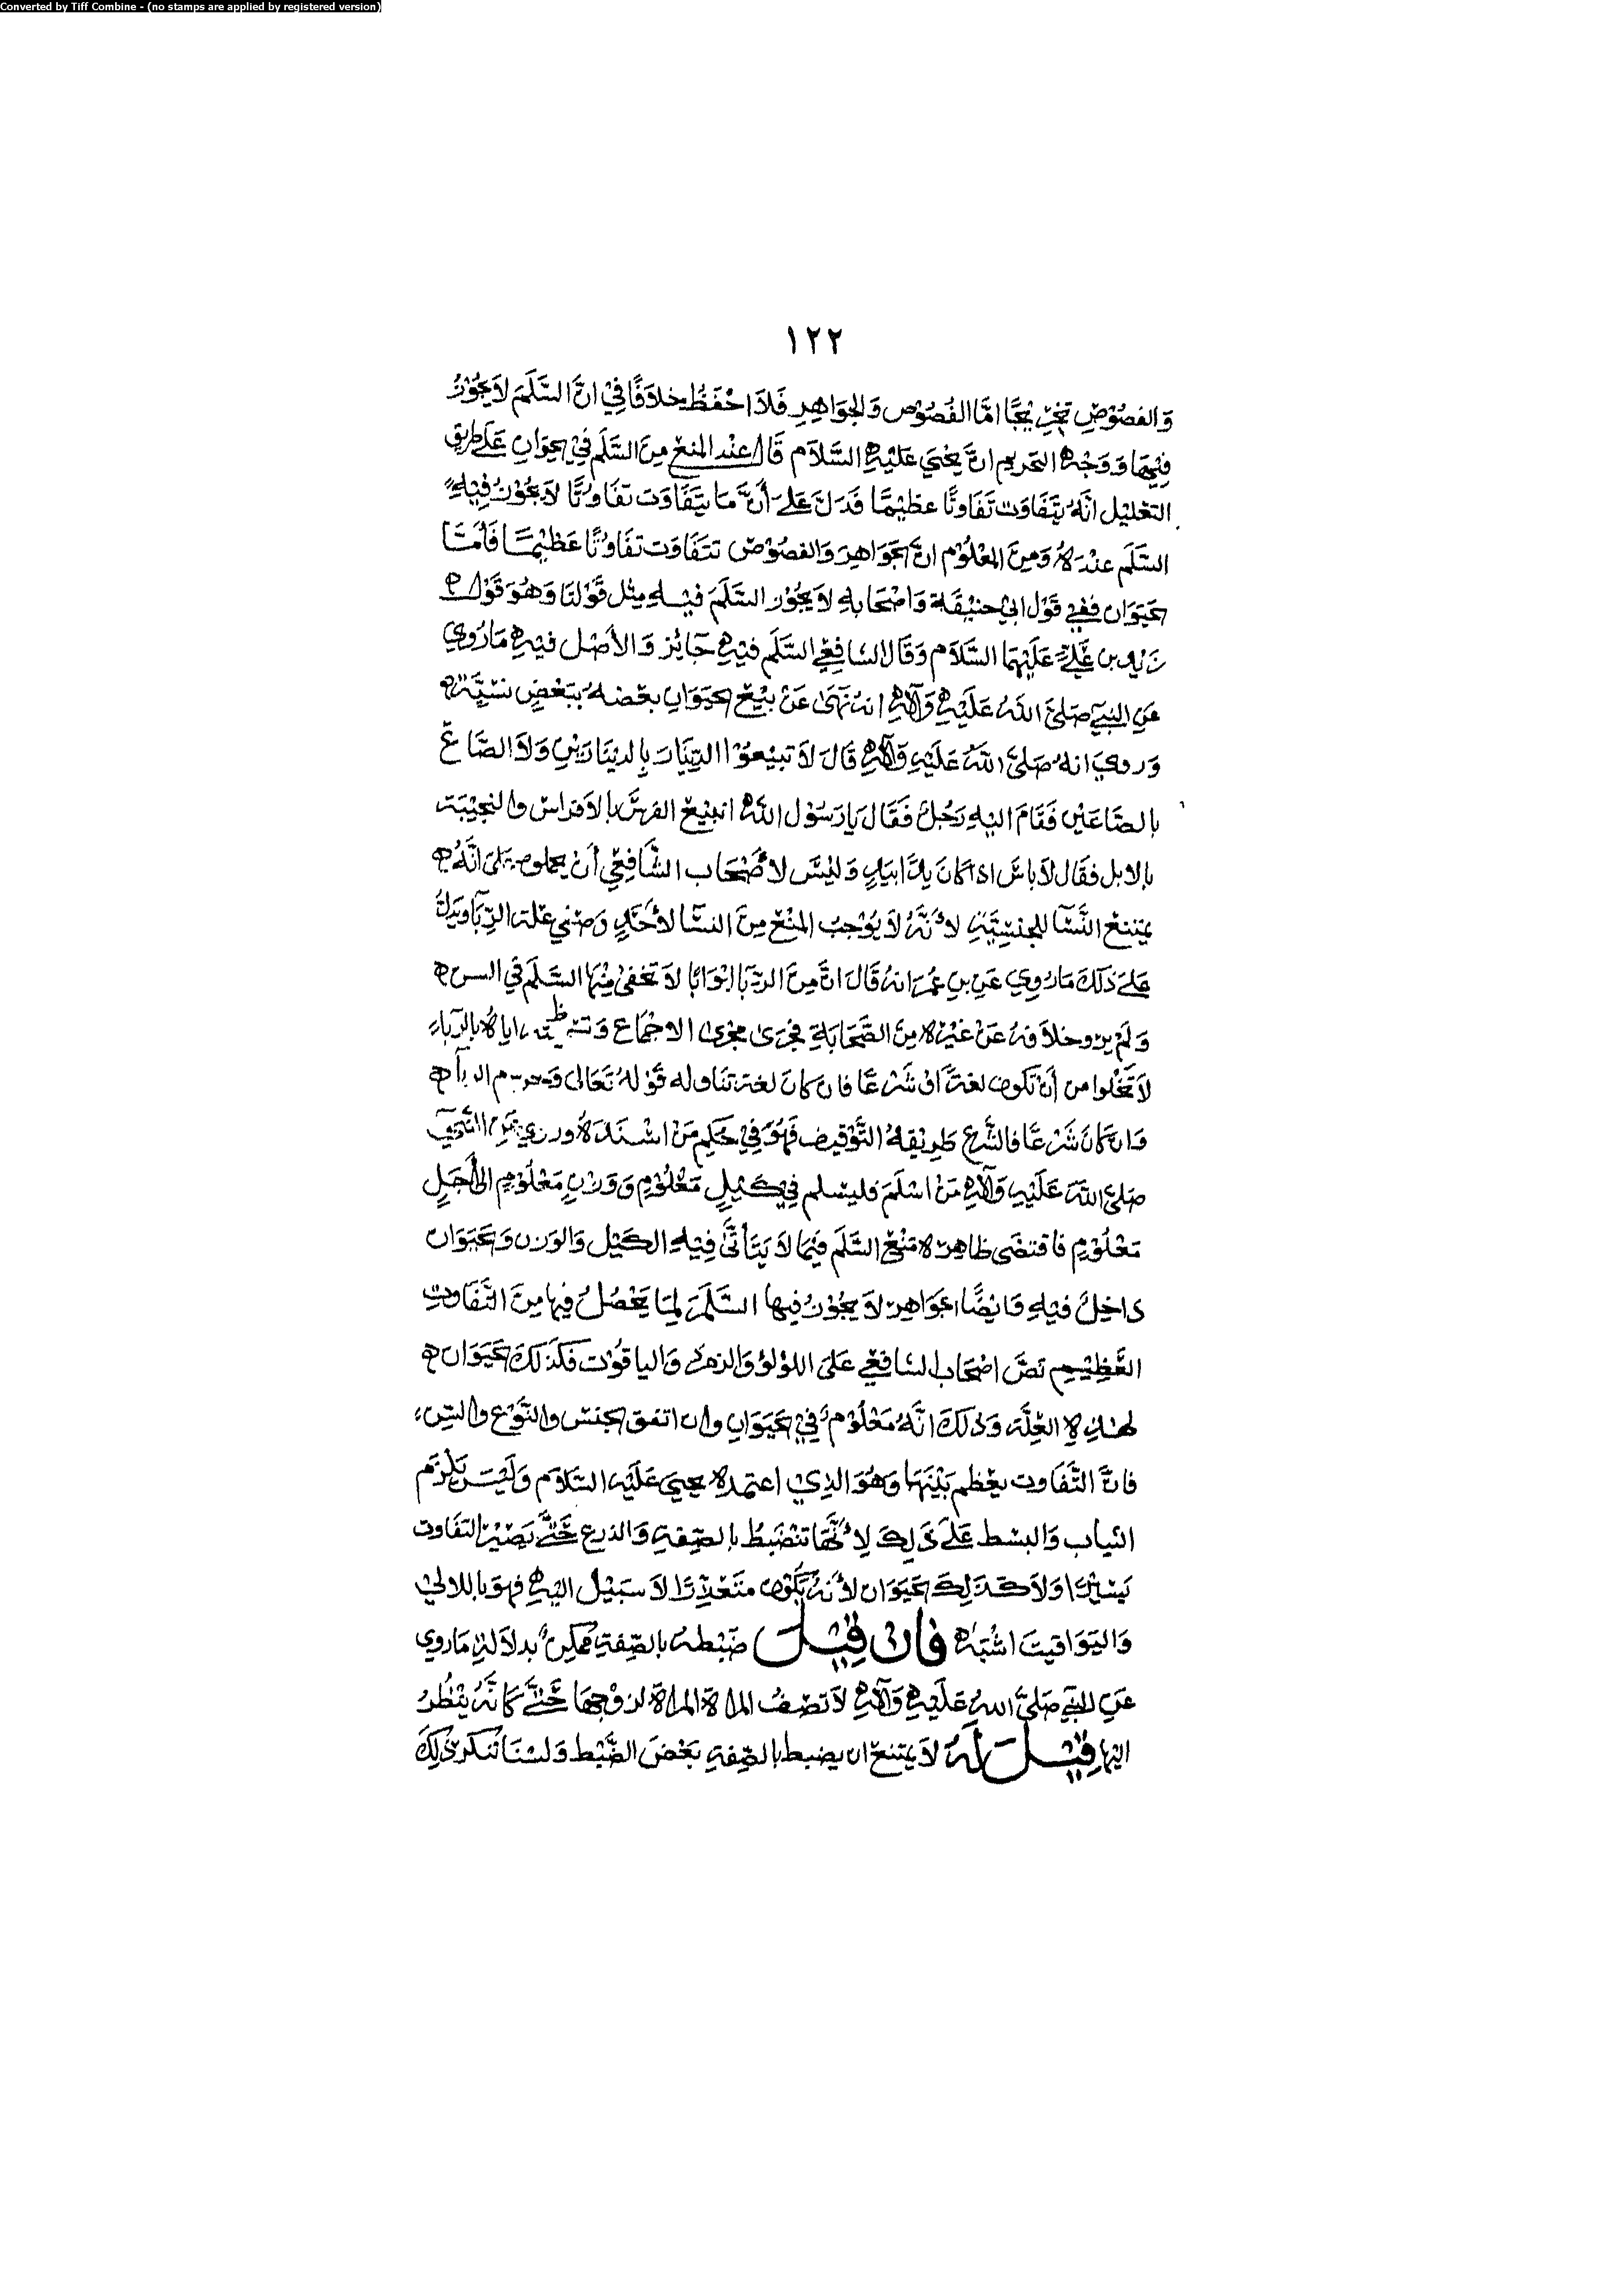 Converted by Tiff Combine - (no stamps are applied by registered version)
١٢٢
وَالفصُوْصِ تخرِيْجًا امَّا الفُصُوْص وَالجوَاهِرِ فَلاَ احْفَظُ خلاَفًا فِيْ انَّ السَّلَمَ لاَ يجُوْزُ
فِيْهَا وَوَجْهُ التحريم انَّ يَحْيَى عَلَيْهِ السَّلاَم قَالَ عِنْد المنع مِنَ السَّلَم فِيْ الحيوَانِ عَلَى طريق
التعْليْل انَّهُ يَتَفَاوَت تَفَاوتًا عظيْمًا فَدَلَّ عَلَى أَنَّ مَا يَتَفَاوَت تفَاوُتًا لاَ يجُوْزُ فِيْهِ
السَّلَم عنْدَهُ وَمِنَ المعْلُوْم انَّ الجوَاهِرَ وَالفصُوْصَ تتفَاوَت تفَاوُتًا عَظِيْمًا فَأَمَّا
الحيَوَان ففي قَوْل ابيْ حنيْفَة وَاصْحَابهِ لاَ يجُوْز السَّلَمَ فيْهِ مِثْل قَوْلنَا وَهُوَ قَوْل
زَيْد بن عَلِيٍّ عَلَيْهمَا السَّلاَم وَقَالَ الشافِعِيْ السَّلَم فيْهِ جَائِز وَالأَصْل فيْهِ مَا رُوِيَ
عَنِ النبيّ صَلىَّ اللهُ عَلَيْهِ وَآلهِ انهُ نهَىَ عَنْ بيْعِ الحيَوَانِ بعْضهُ ببَعْضٍ نسِيئَة
وَروي انهُ صَلىَّ اللهُ عَلَيْهِ وَآلهِ قَالَ لاَ تبيْعوْا الدِّيْنَارَ بِالديْنَارَيْنِ وَلاَ الصَّاعَ
بِالصَّاعَيْنِ فَقَامَ اليْهِ رَجُلٌ فَقَالَ يَا رَسُوْل اللهِ انبيْعُ الفرسَ بالاَفراس والنجيْبَة
بالابل فقال لاَ بَاسَ اذا كانَ يدًا بيَدٍ وَليْسَ لاَصْحَاب الشَّافِعِيْ أنْ يحملوه علىَ انَّهُ
يمتنع النَّسَا للجنسِيَّةِ لأَنَّهُ لاَ يُوْجبُ المنْعَ مِنَ النسَا لأَحَدِ وَصفي علة الرِّبَا وَيَدُلُّ
عَلىَ ذَلكَ مَا رُوِيَ عَنِ بنِ عُمَرَ انهُ قَالَ انَّ مِنَ الرِّبَا ابْوَابًا لاَ تخفىَ مِنْهَا السَّلَم فيْ السن
وَلَمْ يروَ خلاَفهُ عَنْ غيْرهِ مِنَ الصَّحَابَةِ فجَرَىَ مجْرىَ الاجْمَاع وَ اياهُ بالرِّباء
لاَ تَخْلوا من أنْ تكون لغةً اوْ شَرْعًا فان كانَ لغة تناوله قَوْلهُ تَعَالىَ وَحرم الربا
وَان كانَ شَرْعًا فالشَّرع طَرِيْقهُ التَّوْقيف فَهُوَ فِيْ حكمِ مَنْ اسْنَدَهُ وروي عَنِ النَّبي
صَلىَّ اللهُ عَلَيْهِ وَآلهِ مَنْ اسْلَمَ فليسْلم فيْ كَيْلٍ مَعْلُوْمٍ وَوَزْنٍ مَعْلُوْمٍ الىَ أَجَلٍ
مَعْلُوْمٍ فاقتضَى ظاهِرهُ مَنْعَ السَّلَم فيْمَا لاَ يَتَأتَّى فِيْهِ الكَيْل وَالوَزن وَالحيَوَان
دَاخِلٌ فيْهِ وَايْضًا الجوَاهِر لاَ يجُوْزُ فِيْها السَّلَمَ لِمَا يَحْصُلُ فيْهَا مِنَ التَّفَاوُتِ
العَظِيْم نَصَّ اصْحَاب الشافعِيْ عَلىَ اللؤلؤ وَالزمرد وَالياقُوْت فَكذلكَ الحيَوَان
لهذِهِ العِلَّة وَذلكَ انَّهُ مَعْلُوْمٌ فيْ الحيَوَانِ وان اتفق الجنسُ والنَّوْع والسِّن
فانَّ التَّفَاوت يعْظم بَيْنَهَا وَهُوَ الذِيْ اعتمدهُ يحيىَ عَلَيْهِ السَّلاَم وَلَيْسَ يَلْزَم
الثياب وَالبسْط عَلىَ ذَلِكَ لأَنَّهَا تنْضَبطُ بالصِّفةِ وَالذرع حَتَّى يَصيْرَ التفَاوت
يَسيْرًا وَلاَ كَذَلِكَ الحيَوَان لأَنهُ يَكُوْن متَعَذِّرًا لاَ سَبيْل اليْهِ فهوَ باللالي
وَاليَوَاقيت اشْبَه فَان قِيْلَ ضَبْطهُ بالصِّفةِ ممكِنٌ بدلاَلةِ مَا روي
عَنِ النبيّ صَلىَّ اللهُ عَلَيْهِ وَآلهِ لاَ تصِفُ المراة المراة لزوْجهَا حَتَّى كَانَّهُ يَنْظُرُ
اليْهَا قِيْلَ لَهُ لاَ يمتنع ان يضبط بالصِّفةِ بَعْضَ الضَّبْط وَلسْنَا نُنكر ذَلِكَ